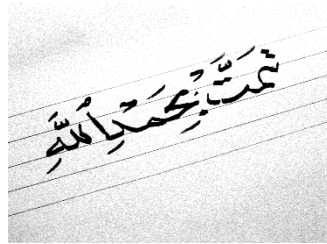 تمَّتْ بِحَمْدِ اللَّهِ